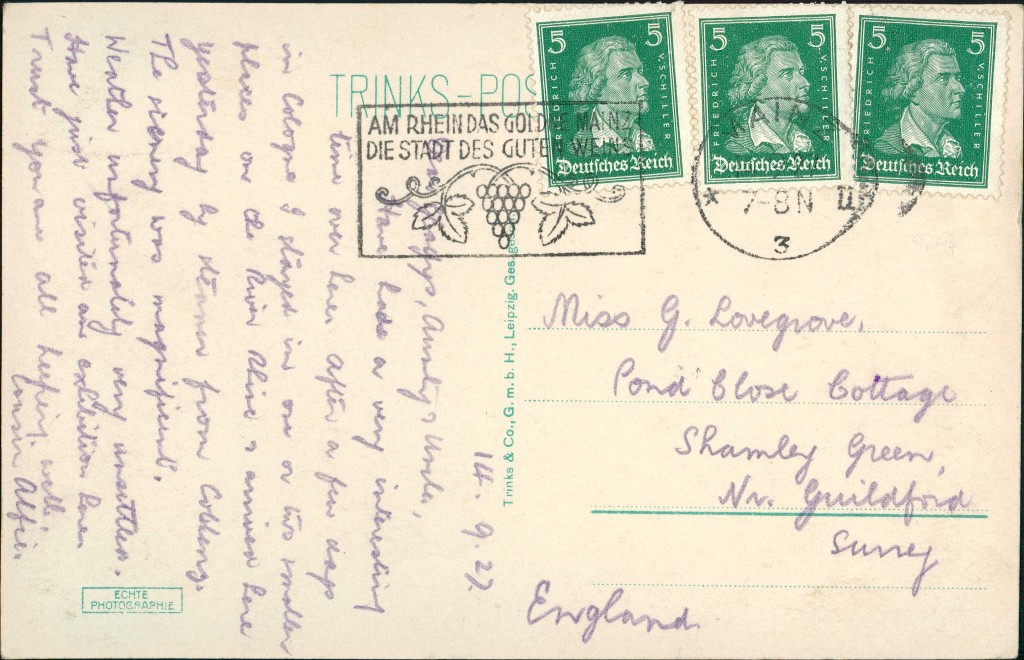 TRINKS-POS
5 5
FRIEDRICH V SCHILLER
Deutsches Reich
5 5
FRIEDRICH V SCHILLER
Deutsches Reich
5 5
FRIEDRICH V SCHILLER
Deutsches Reich
AM RHEIN DAS GOLDNE MAINZ
DIE STADT DES GUTEN WEINS
MAINZ
7-8 N
3
14. 9. 27.
Aunty & Uncle,
Have had a very interesting
time over here. After a few days
in Cologne I stayed in one or two smaller
places on the River Rhine & arrived here
yesterday by steamer from Coblenz.
The scenery was magnificent.
Weather unfortunately very unsettled.
Have just visited an exhibition here
Trust you are all keeping well.
Cousin Alfie.
Trinks & Co., G. m. b. H., Leipzig. Ges. ge
Miss G. Lovegrove,
Pond Close Cottage
Shamley Green,
Nr. Guildford
Surrey
England.
ECHTE
PHOTOGRAPHIE